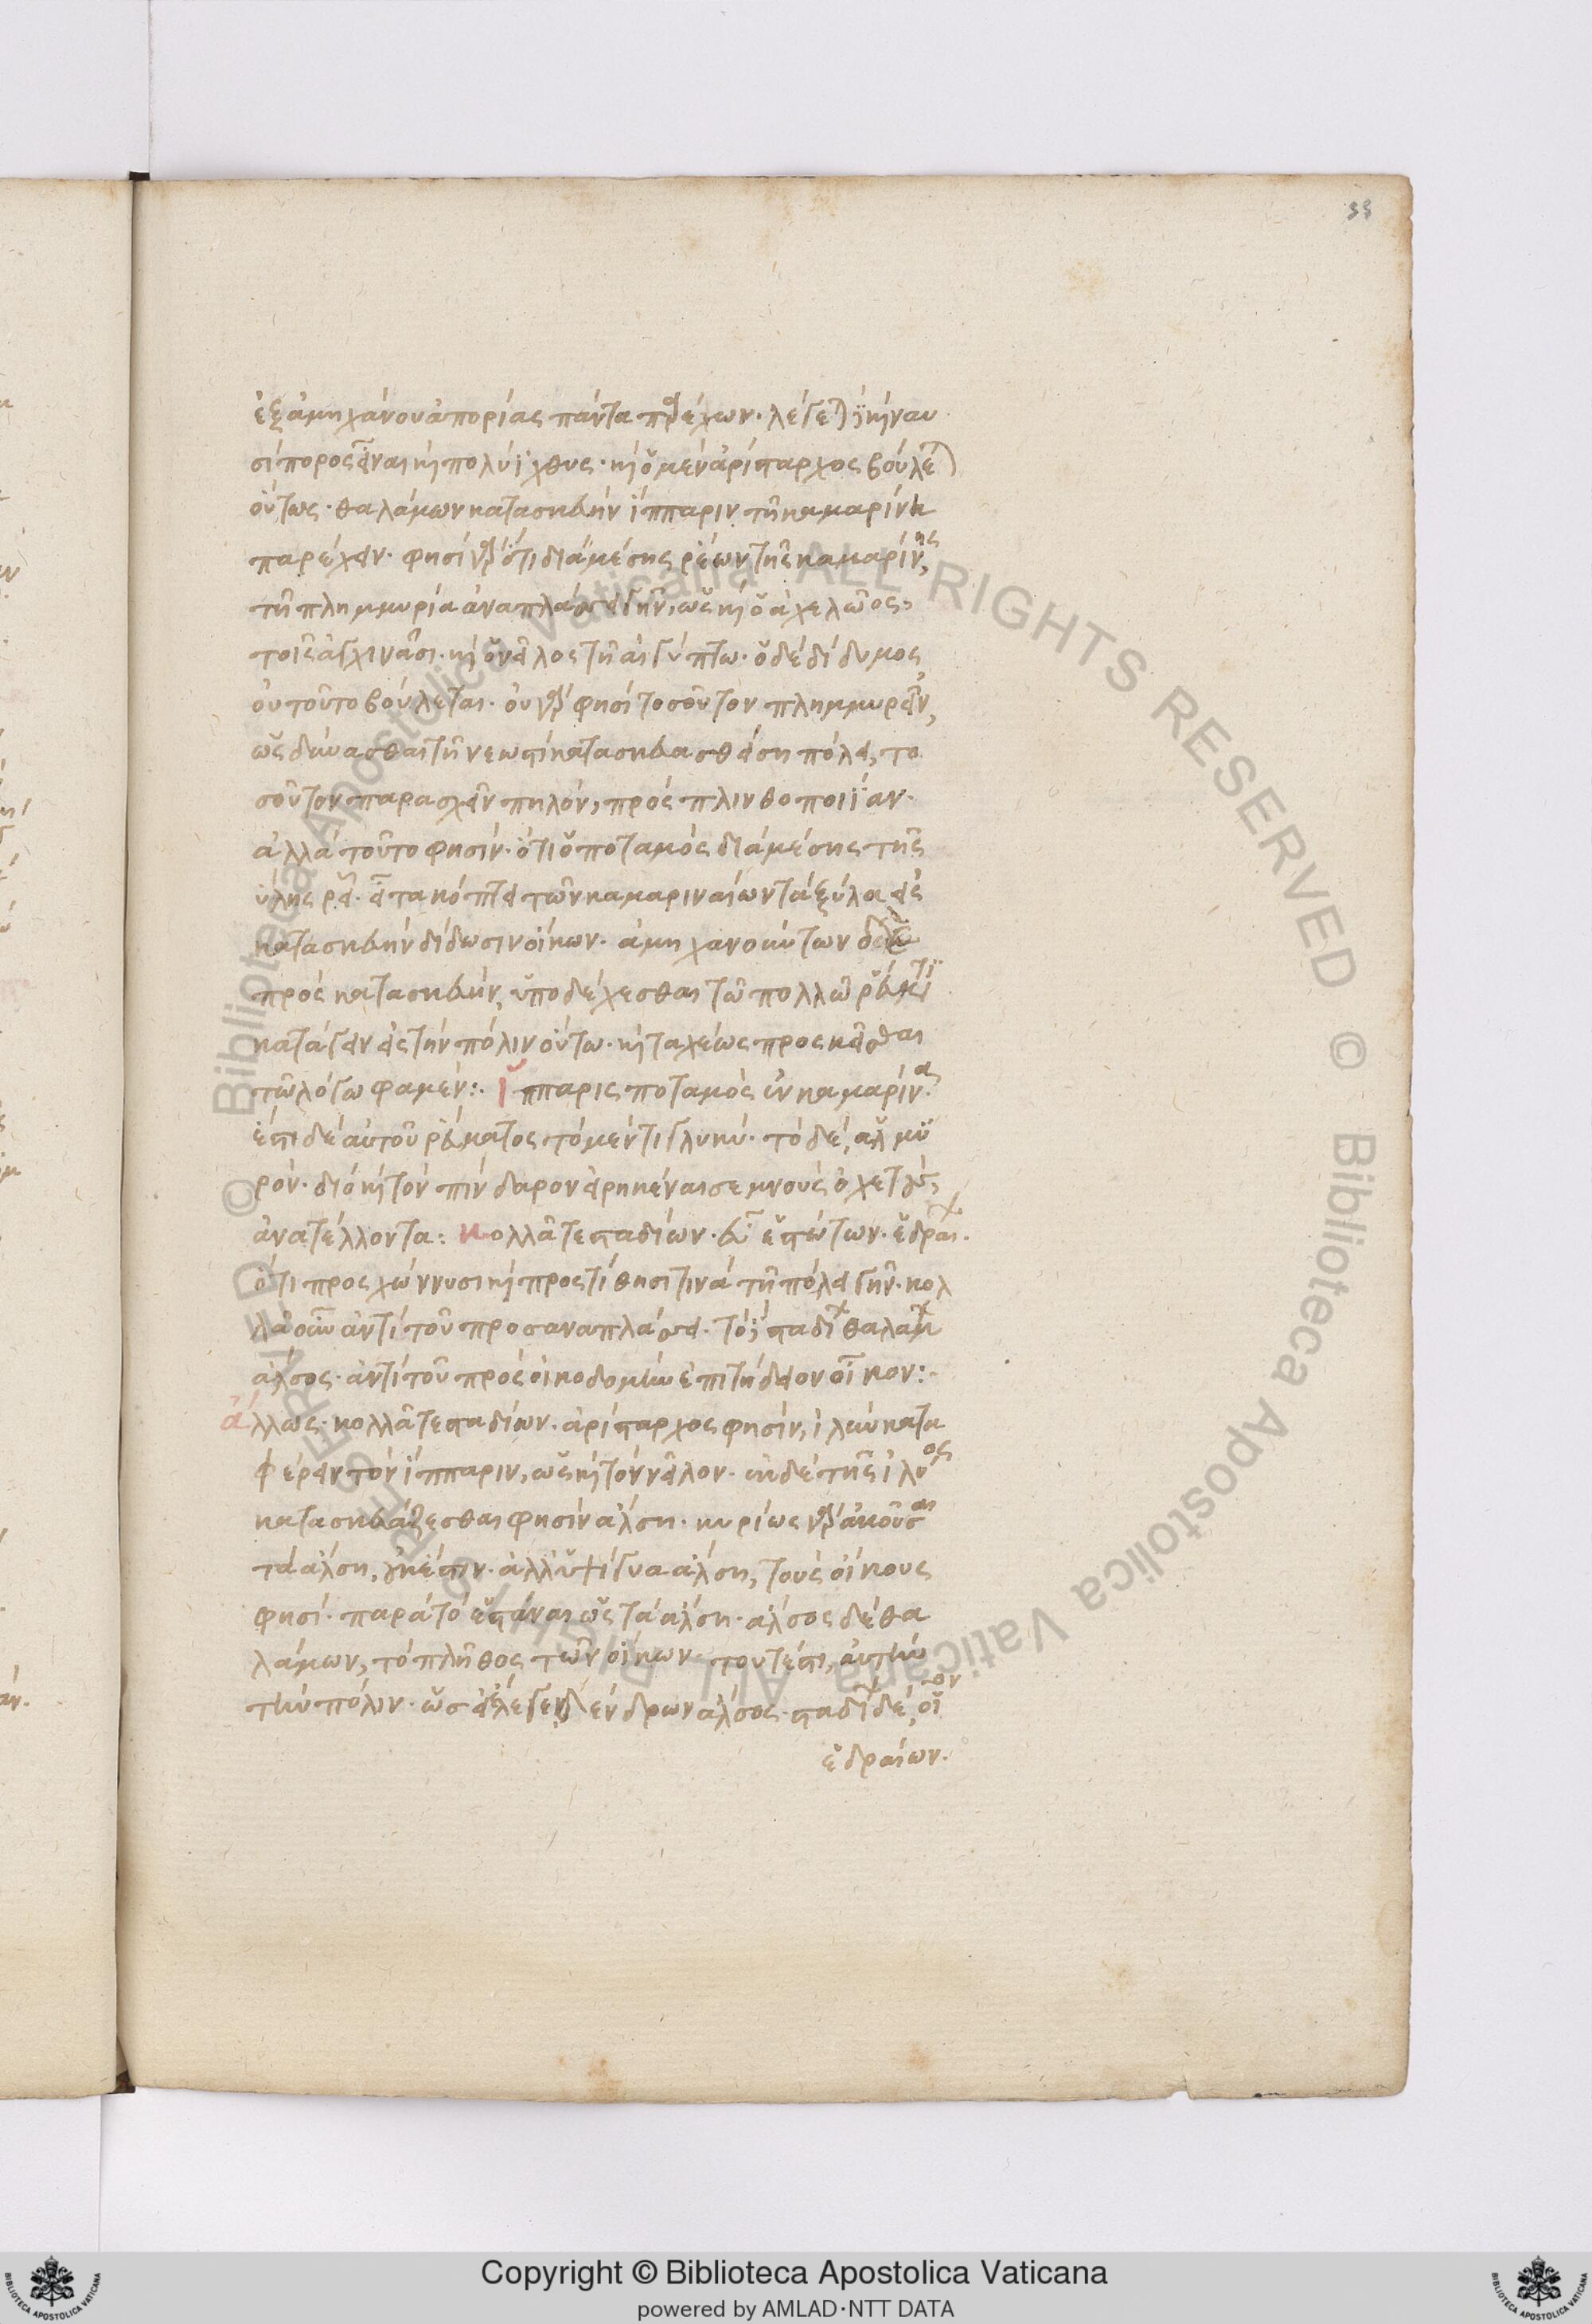 33
ἐξ ἀμηχάνου ἀπορίας πάντα παρέχων· λέγεται καὶ ναυ
σίπορος εἶναι καὶ πολύιχθυς· καὶ ὁ μὲν ἀρίσταρχος βούλεται
οὕτως· θαλάμων κατασκευὴν ἵππαριν τῆ καμαρίνη
παρέχειν· φησὶ γὰρ ὅτι διὰ μέσης ῥέων τῆς καμαρίνης,
τῆ πλημμυρία ἀναπλάσσει γῆν, ὡς καὶ ὁ ἀχελῶος,
τοῖς ἀγχινᾶσι· καὶ ὁ νεῖλος τῆ αἰγύπτω· ὁ δὲ δίδυμος
οὐ τοῦτο βούλεται· οὐ γὰρ φησὶ τοσοῦτον πλημμυρεῖν,
ὡς δύνασθαι τῆ νεωστὶ κατασκευασθείση πόλει, το
σοῦτον παρασχεῖν πηλόν, πρὸς πλινθοποιΐαν·
ἀλλὰ τοῦτο φησίν· ὅτι ὁ ποταμὸς διὰ μέσης τῆς
ὕλης ῥεῖ· εἶτα κόπτει τῶν καμαριναίων τὰ ξύλα εἰς
κατασκευὴν δίδωσιν οἴκων· ἀμηχανούντων
πρὸς κατασκευήν, ὑποδέχεσθαι τῶ πολλῶ ῥεύματι
κατάγειν εἰς τὴν πόλιν οὕτω· καὶ ταχέως προσκεῖσθαι
τῶ λόγω φαμέν:· ἵππαρις ποταμὸς ἐν καμαρίνα·
ἔστι δὲ αὐτοῦ ῥεύματος τὸ μέν τι γλυκύ· τὸ δέ, ἁλμυ
ρόν· διὸ καὶ τὸν πίνδαρον εἰρηκέναι σεμνοὺς ὀχετούς,
ἀνατέλλοντα: κολλᾶτε σταδίων· εὖ ἑστώτων· ἑδραίων·
ὅτι προσχώννυσι καὶ προστίθησι τινὰ τῆ πόλει γῆν· κολ
λᾶ οὖν ἀντὶ τοῦ προσαναπλάσσει· τὸ σταδίων θαλάμων
ἄλσος· ἀντὶ τοῦ πρὸς οἰκοδομὴν ἐπιτήδειον οἴκων:·
ἄλλως· κολλᾶτε σταδίων· ἀρίσταρχος φησίν, ἰλὺν κατα
φέρειν τὸν ἵππαριν, ὡς καὶ τὸν νεῖλον· ἐκ δὲ τῆς ἰλύος
κατασκευάζεσθαι φησὶν ἄλση· κυρίως γὰρ ἀκοῦσαι
τὰ ἄλση, οὐκ ἔστιν· ἀλλ' ὑψίγυα ἄλση, τοὺς οἴκους
φησί· παρὰ τὸ ἑστάναι ὡς τὰ ἄλση· ἄλσος δὲ θα
λάμων, τὸ πλῆθος τῶν οἴκων· τουτέστι, αὐτὴν
τὴν πόλιν· ὡς εἰ ἔλεγεν, δένδρων ἄλσος· σταδίων δέ, οἷον
ἑδραίων.